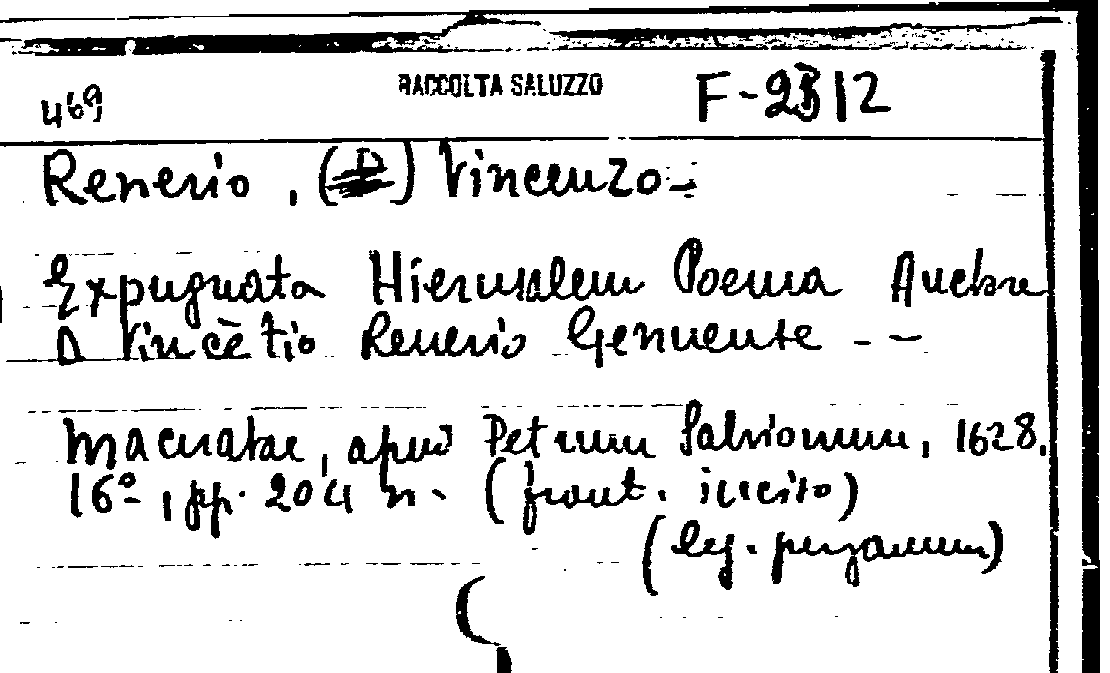 469 RACCOLTA SALUZZO F-2312
Renerio, (D) Vincenzo -
Expugnata Hierusalem Poema
D Vincẽtio Renerio Genuense - -
Maceratae, apud Petrum Salvionum, 1628.
16º, pp. 204 n. (front. inciso)
(leg. pergamena)